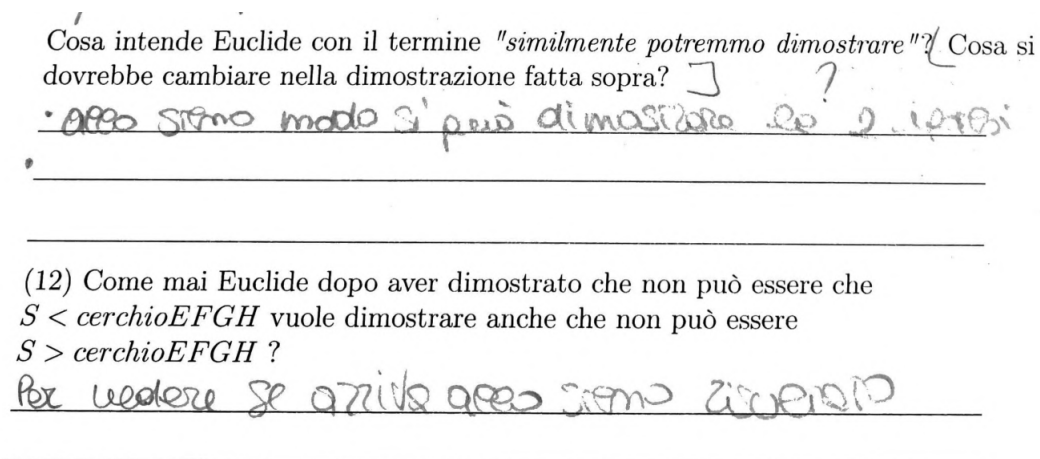 Cosa intende Euclide con il termine "similmente potremmo dimostrare"? Cosa si
dovrebbe cambiare nella dimostrazione fatta sopra? ] ?
· allo stesso modo si può dimostrare le 2 ipotesi
(12) Come mai Euclide dopo aver dimostrato che non può essere che
S < cerchioEFGH vuole dimostrare anche che non può essere
S > cerchioEFGH ?
Per vedere se arriva allo